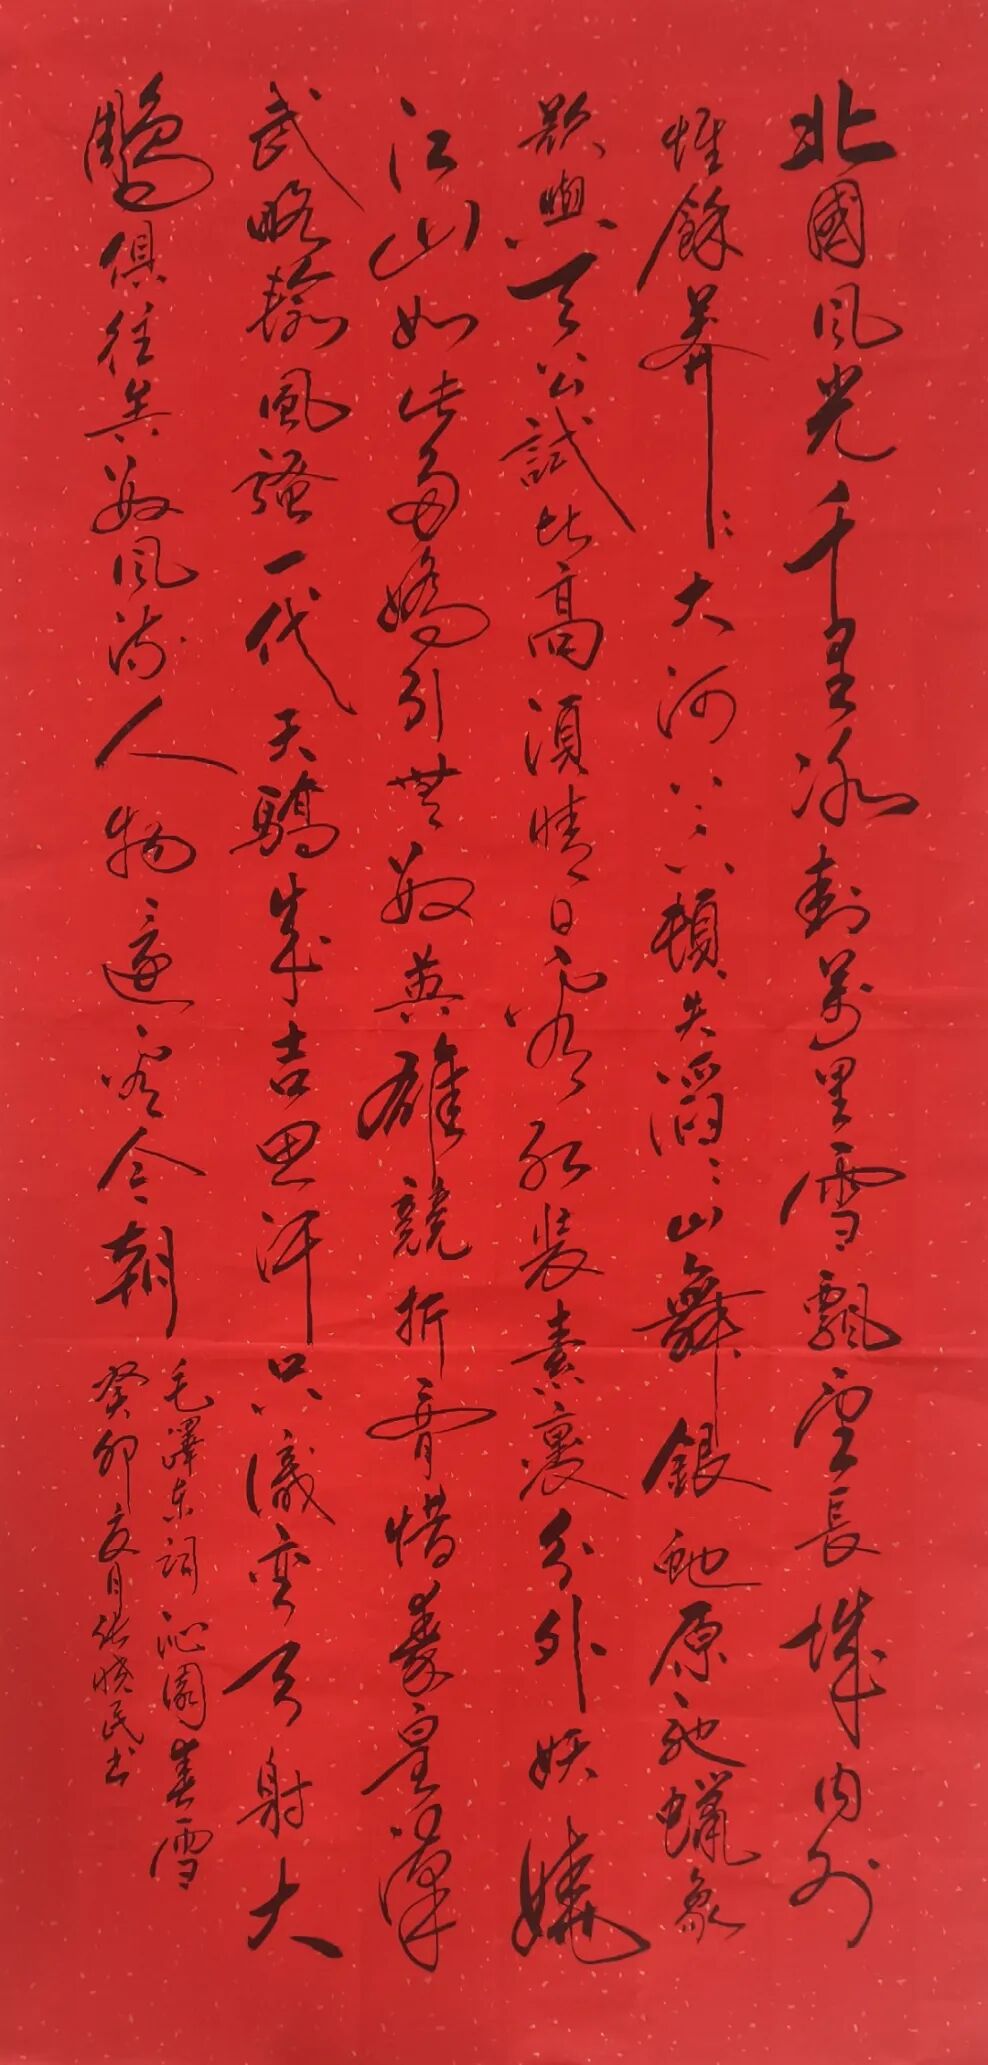 北國风光千里冰封萬里雪飄望長城内外
惟餘莽〻大河上下頓失滔〻山舞銀虵原馳蠟象
欲與天公試比高須晴日看紅裝素裹分外妖嬈
江山如此多嬌引無數英雄競折腰惜秦皇漢
武略輸風騷一代天驕成吉思汗只識彎弓射大
鵰俱往矣數风流人物還看今朝
毛澤东詞沁園春雪
癸卯夏月张晓民书